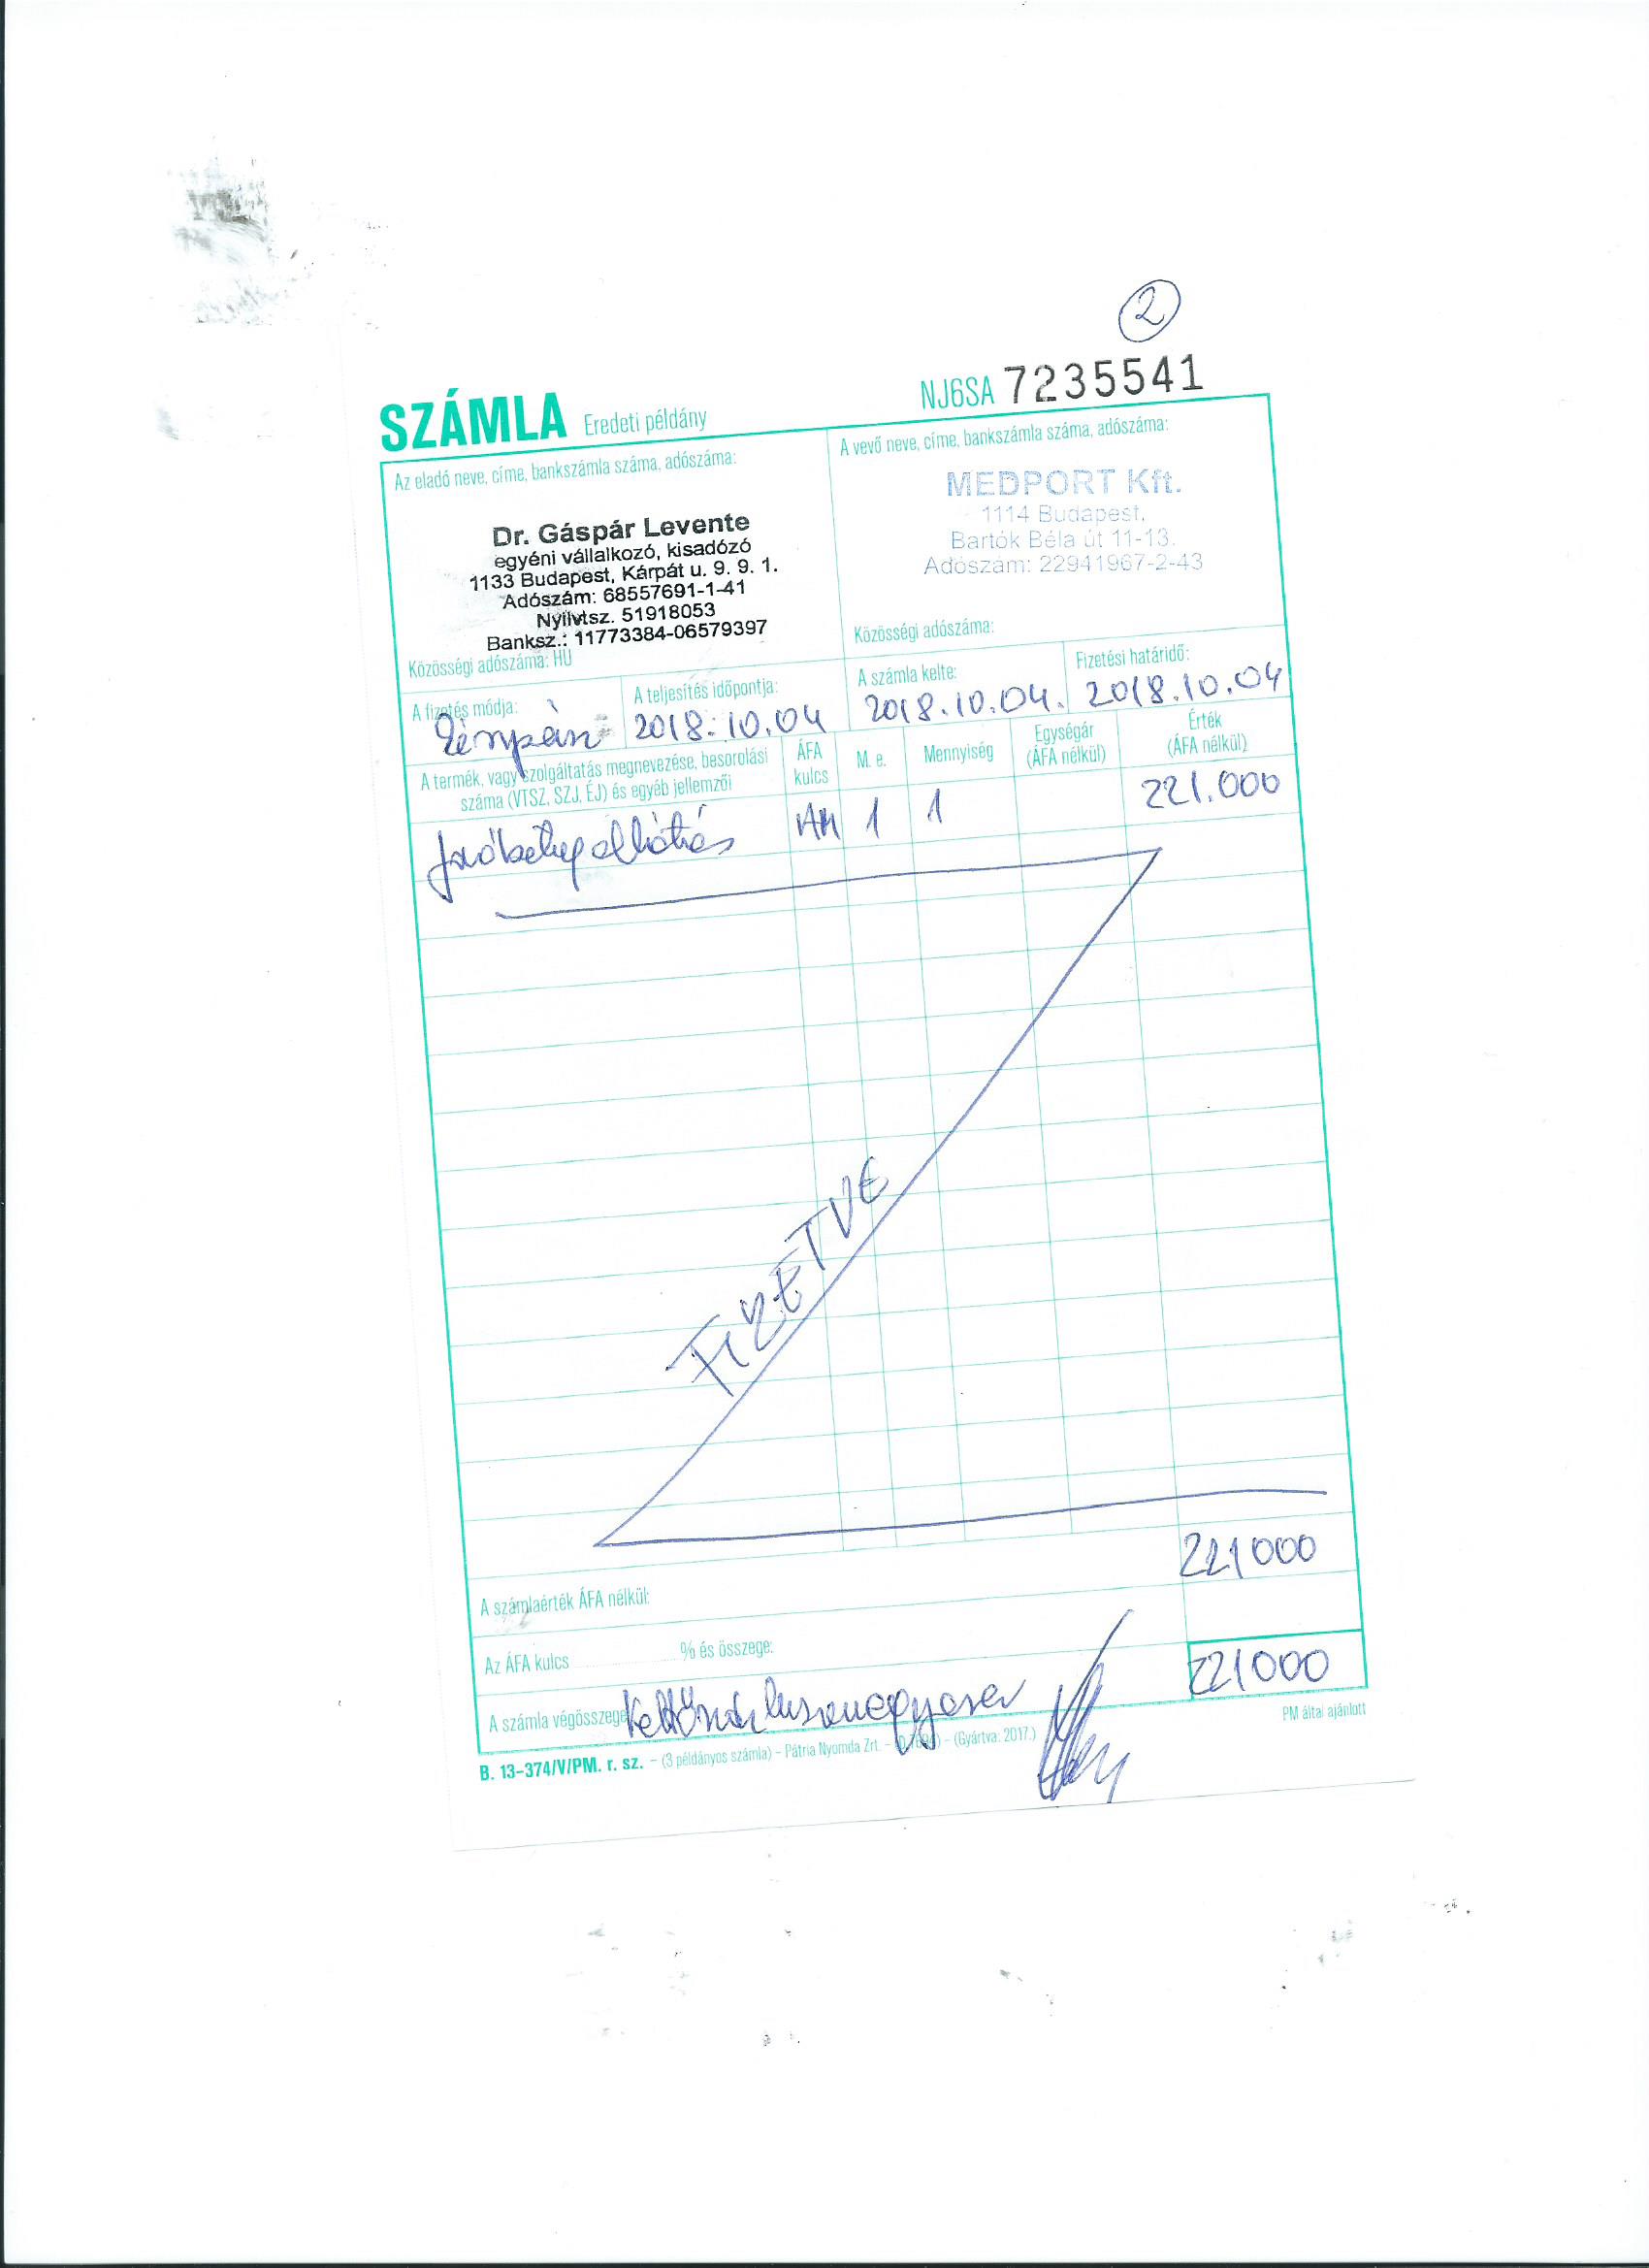 2
SZÁMLA Eredeti példány
NJ6SA 7235541
Az eladó neve, címe, bankszámla száma, adószáma:
Dr. Gáspár Levente
egyéni vállalkozó, kisadózó
1133 Budapest, Kárpát u. 9. 9. 1.
Adószám: 68557691-1-41
Nyilvtsz. 51918053
Banksz.: 11773384-06579397
Közösségi adószáma: HU
A vevő neve, címe, bankszámla száma, adószáma:
MEDPORT Kft.
1114 Budapest,
Bartók Béla út 11-13.
Adószám: 22941967-2-43
Közösségi adószáma:
A fizetés módja:
A teljesítés időpontja:
2018.10.04
A számla kelte:
2018.10.04.
Fizetési határidő:
2018.10.04
A termék, vagy szolgáltatás megnevezése, besorolási
száma (VTSZ, SZJ, ÉJ) és egyéb jellemzői
ÁFA
kulcs
M. e.
Mennyiség
Egységár
(ÁFA nélkül)
Érték
(ÁFA nélkül)
járóbeteg ellátás 1 1 221.000
FIZETVE
A számlaérték ÁFA nélkül: 221000
Az ÁFA kulcs % és összege:
A számla végösszege 221000
B. 13-374/V/PM. r. sz. – (3 példányos számla) – Pátria Nyomda Zrt. – – (Gyártva: 2017.)
PM által ajánlott